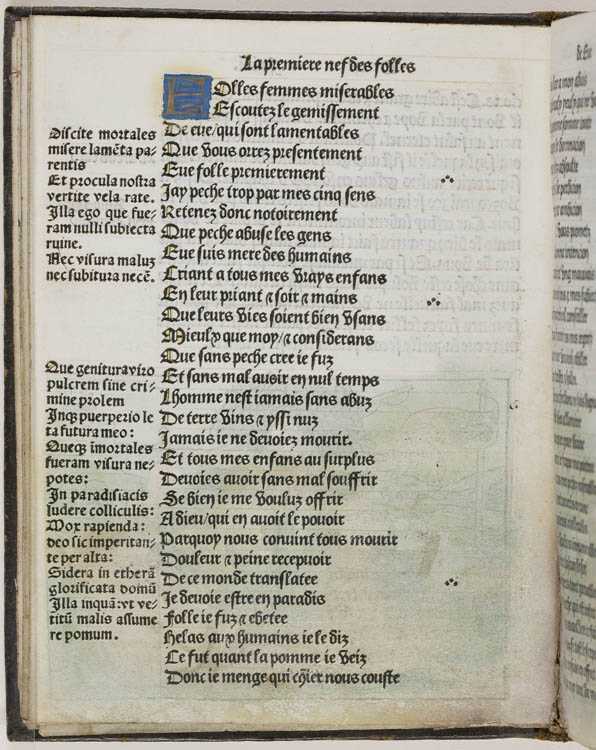 La premiere nef des folles
FOlles femmes miserables
Escoutez le gemissement
De eue/qui sont lamentables
Que vous orrez presentement
Eue folle premierement
Jay peche trop par mes cinq sens
Retenez donc notoirement
Que peche abuse les gens
Eue suis mere des humains
Criant a tous mes vrays enfans
En leur priant ⁊ soir ⁊ mains
Que leurs vies soient bien vsans
Mieulx que moy/⁊ considerans
Que sans peche cree ie fuz
Et sans mal auoir en nul temps
Lhomme nest iamais sans abuz
De terre vins ⁊ yssi nuz
Jamais ie ne deuoiez mourir.
Et tous mes enfans au surplus
Deuoies auoir sans mal souffrir
Se bien ie me vouluz offrir
A dieu/qui en auoit le pouoir
Parquoy nous conuint tous mourir
Douleur ⁊ peine recepuoir
De ce monde translatee
Je deuoie estre en paradis
Folle ie fuz ⁊ ebetee
Helas aux humains ie le diz
Ce fut quant la pomme ie veiz
Donc ie menge qui chier nous couste
Discite mortales
misere lamēta pa⸗
rentis
Et procula nostra
vertite vela rate.
Illa ego que fue⸗
ram nulli subiecta
ruine.
Nec visura maluz
nec subitura necē.
Que genitura viro
pulcrem sine cri⸗
mine prolem
Inq; puerperio le
ta futura meo:
Queq; īmortales
fueram visura ne⸗
potes:
In paradisiacis
ludere colliculis:
Mox rapienda:
deo sic imperitan⸗
te per alta:
Sidera in etherā
glorificata domū
Illa inquā:vt ve⸗
titū malis assume
re pomum.